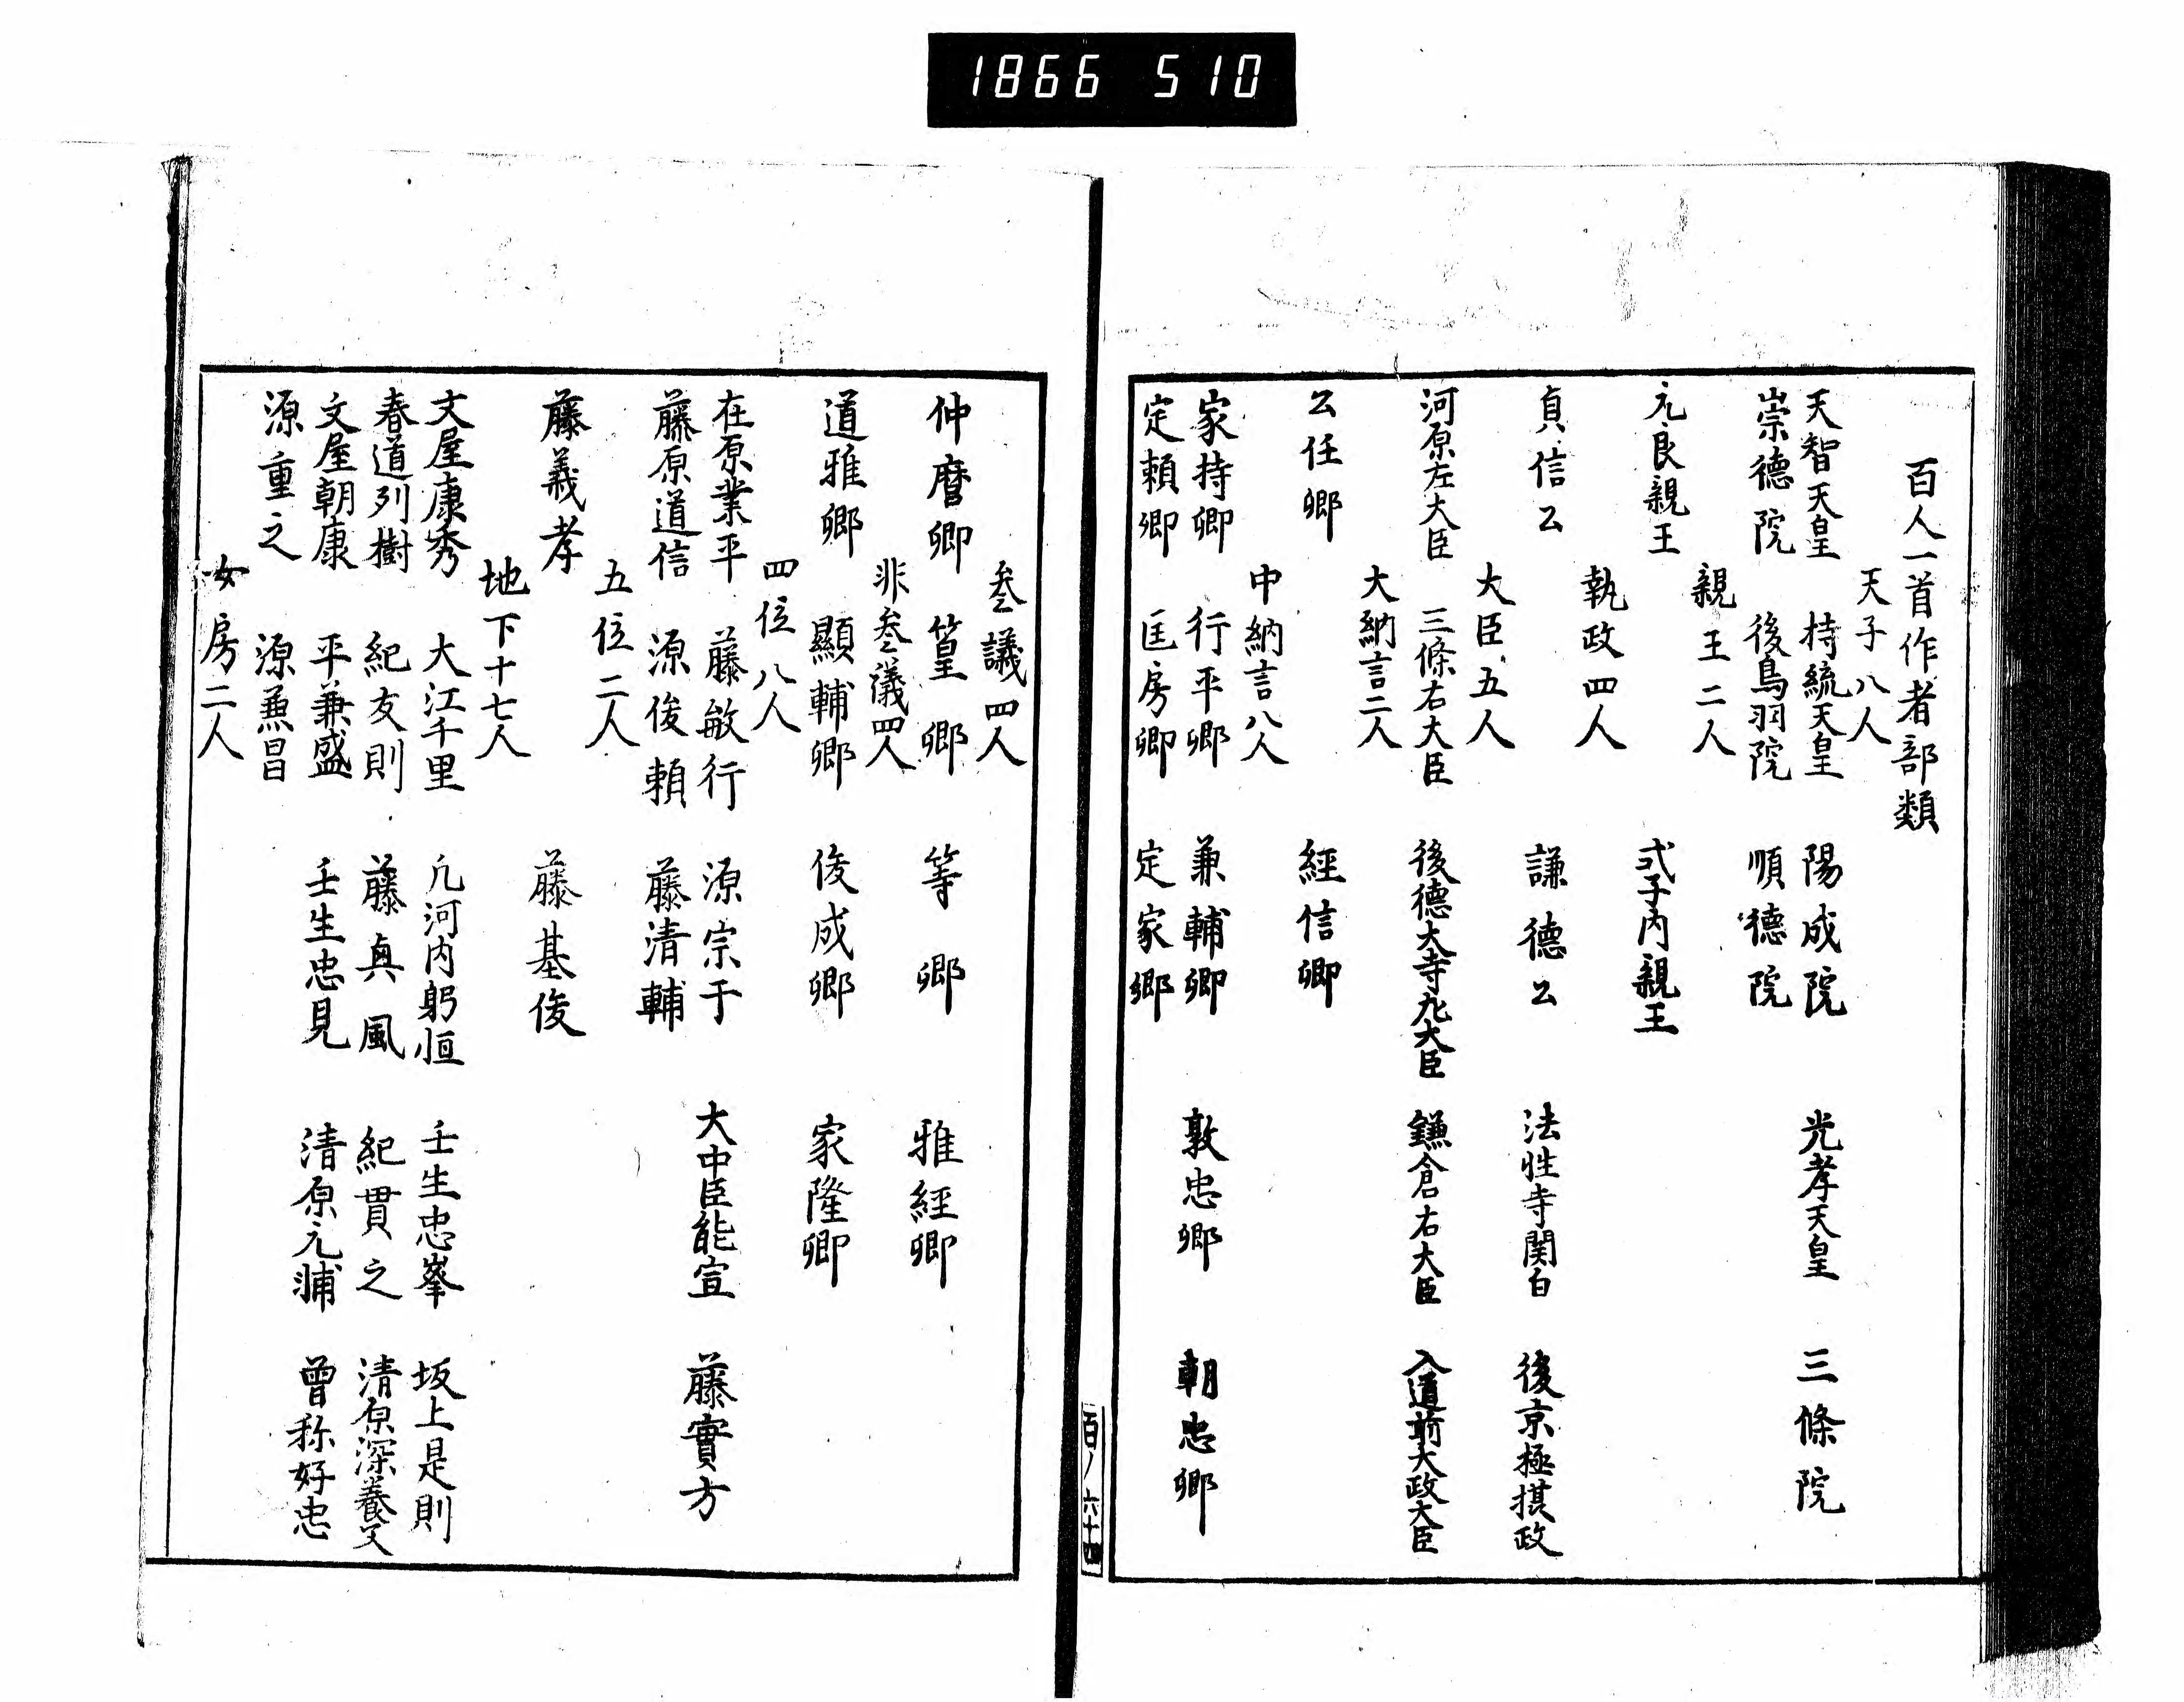 1866 510
百人一首作者部類
天子八人
天智天皇 持統天皇 陽成院 光孝天皇 三條院
崇德院 後鳥羽院 順德院
親王二人
元良親王 式子内親王
執政四人
貞信公 謙德公 法性寺関白 後京極摂政
大臣五人
河原左大臣 三條右大臣 後德大寺九大臣 鎌倉右大臣 入道前大政大臣
大納言二人
公任卿 經信卿
中納言八人
家持卿 行平卿 兼輔卿 敦忠卿 朝忠卿
定頼卿 匡房卿 定家卿
百ノ 六十四
叄議四人
仲麿卿 篁卿 等卿 雅經卿
非叄議四人
道雅卿 顯輔卿 俊成卿 家隆卿
四位八人
在原業平 藤敏行 源宗于 大中臣能宣 藤實方
藤原道信 源俊頼 藤清輔
五位二人
藤義孝 藤基俊
地下十七人
文屋康秀 大江千里 凢河内躬恒 壬生忠峯 坂上是則
春道列樹 紀友則 藤真風 紀貫之 清原深養父
文屋朝康 平兼盛 壬生忠見 清原元輔 曾祢好忠
源重之 源兼昌
女房二人